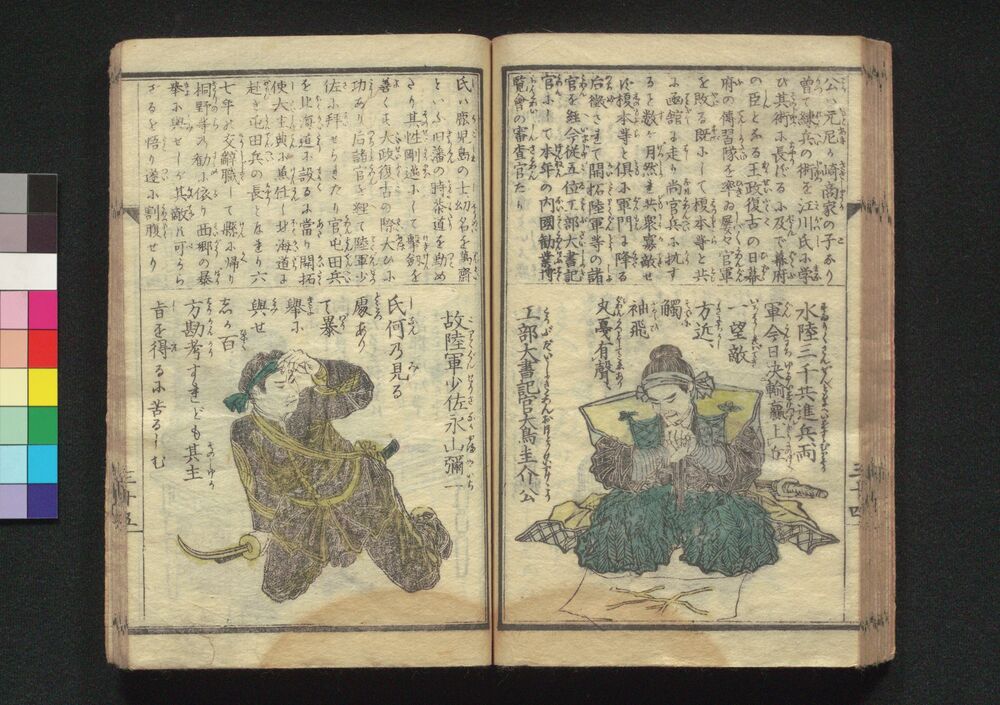 公ハ元尼ヶ崎尚家の子なり
曽て練兵の術を江川氏に学
び其術に長ずるに及で幕府
の臣となる王政復古の日幕
府の傳習隊を率ゐ屡々官軍
を敗る既にして榎本等と共
に函館に走り尚官兵に抗す
ると数ヶ月然共衆寡敵せ
ず榎本等と倶に軍門に降る
后徴されて開拓陸軍等の諸
官を経今従五位工部大書記
官にして本年の内國勧業博
覧會の審査官たり
水陸三千共進兵両
軍今日決輸贏上丘
一望敵
方近
觸
袖飛
丸憂有聲
工部大書記官大鳥圭介公
三十四
氏ハ鹿児島の士幼名を萬齋
といふ旧藩の時茶道を勤め
さり其性剛邁にして撃剣を
善くす大政復古の際大ひに
功あり后諸官を経て陸軍少
佐に拝せられたり官屯田兵
を北海道に設るに當り開拓
使大主典に兼任し北海道に
赴き屯田兵の長となり六
七年の交辭職して縣に帰り
桐野等の勧に依り西郷の暴
挙に與せしが其敵に可らら
ざるを悟り遂に割腹せり
故陸軍少佐永山彌一
氏何乃見る
處あり
て暴
舉に
與せ
しか百
方勘考すれども其主
旨を得るに苦るしむ
三十五